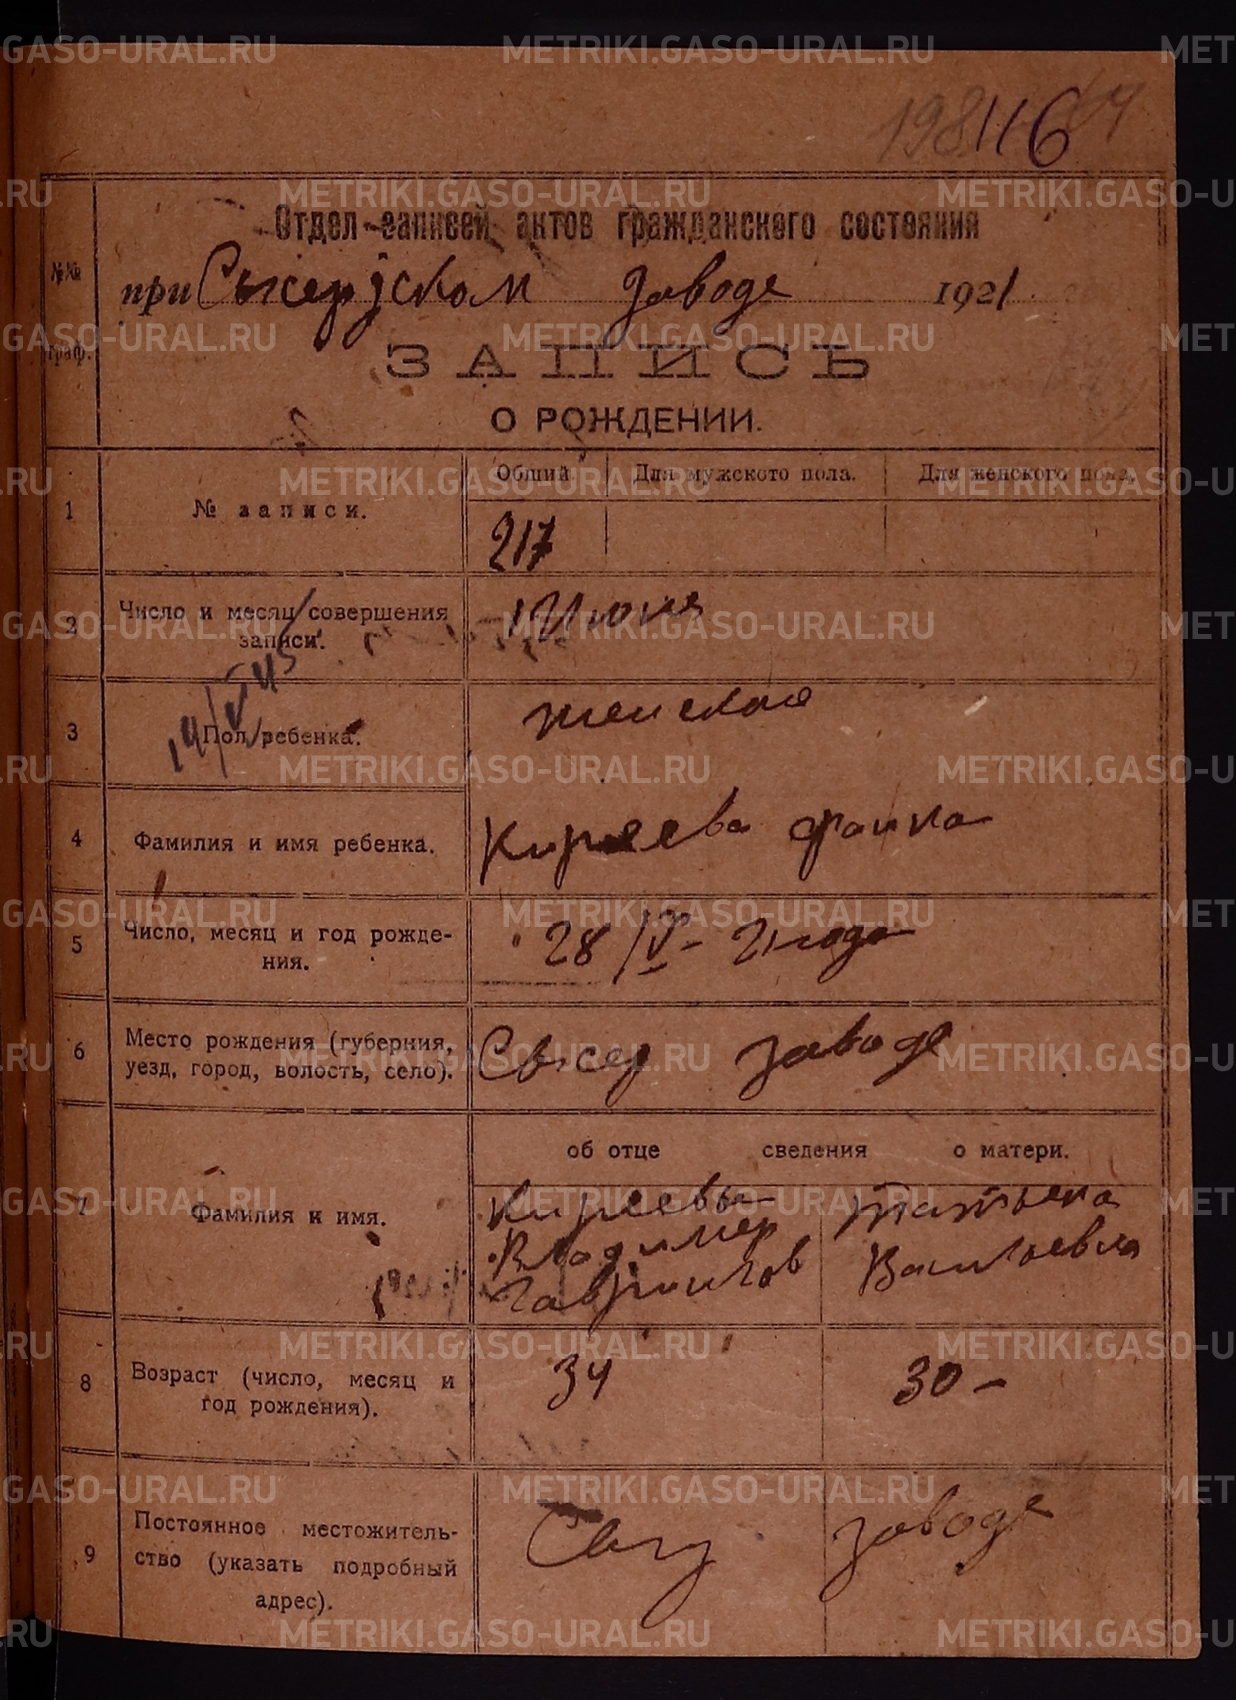 116
Отдел записей актов гражданского состояния
№№ граф.
при Сысертском заводе 1921
ЗАПИСЬ
О РОЖДЕНИИ.
Общий Для мужского пола. Для женского пола.
1 № записи. 217
2 Число и месяц совершения 1 Июня
записи.
14/V 45
3 Пол ребенка. женская
4 Фамилия и имя ребенка. Киреева Фаина
5 Число, месяц и год рожде- 28/V - 21 года
ния.
6 Место рождения (губерния, Сысер заводе
уезд, город, волость, село).
об отце сведения о матери.
7 Фамилия и имя. Киреевы Татьяна
Владимер Васильевна
Гаврилов
8 Возраст (число, месяц и 34 30 -
год рождения).
9 Постоянное местожитель- заводе
ство (указать подробный
адрес).
METRIKI.GASO-URAL.RU